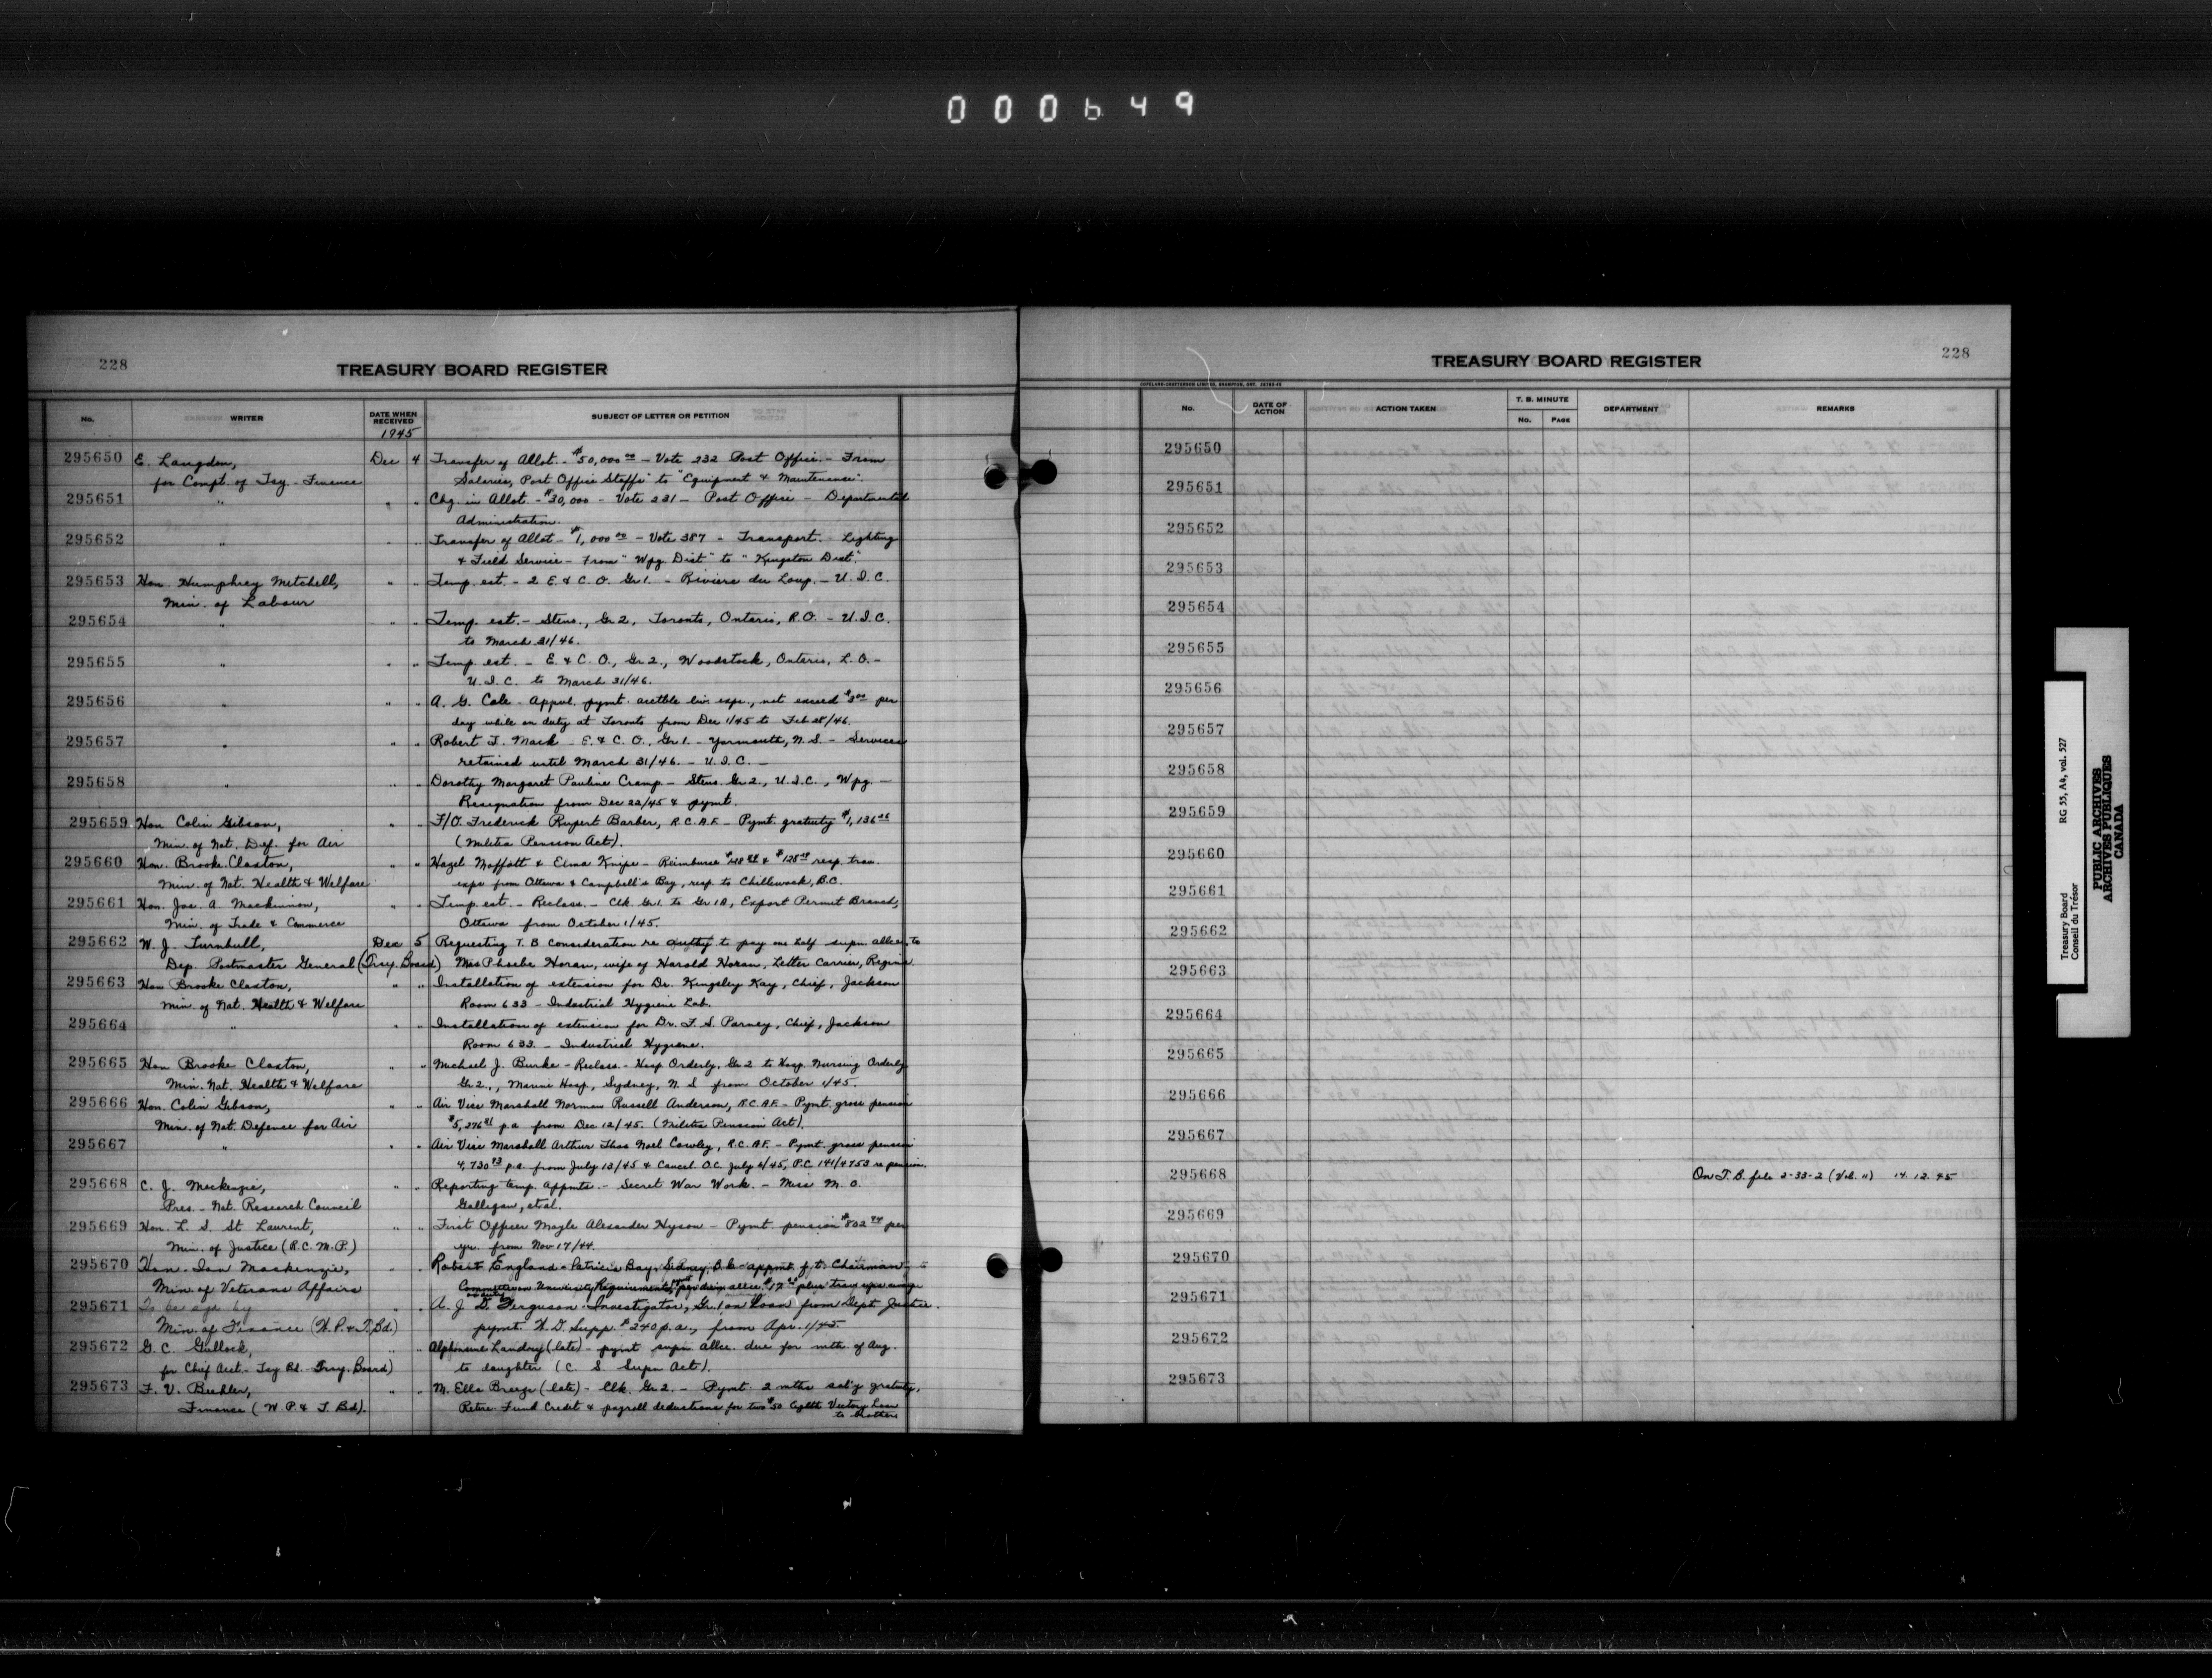 000649
228
TREASURY BOARD REGISTER
No. WRITER DATE WHEN RECEIVED SUBJECT OF LETTER OR PETITION
1945
295650 E. Langdon, Dec 4 Transfer of Allot. - $50,000 00 - Vote 232 Post Office - From
for Compt. of Tsy. - Finance Salaries, Post Office Staffs" to "Equipment & Maintenance".
295651 " " " Chg. in Allot. - $30,000 - Vote 231 - Post Office - Departmental
Administration.
295652 " " " Transfer of Allot - $1,000 00 - Vote 387 - Transport. - Lighting
& Field Service - From "Wpg Dist" to "Kingston Dist".
295653 Hon. Humphrey Mitchell, " " Temp. est. - 2 E. & C. O. Gr 1. - Riviere du Loup. - U.I.C.
Min. of Labour
295654 " " " Temp. est. - Steno., Gr 2, Toronto, Ontario, R.O. - U.I.C.
to March 31/46.
295655 " " " Temp. est. - E. & C. O., Gr 2., Woodstock, Ontario, L.O. -
U.I.C. to March 31/46.
295656 " " " A. G. Cale - Appvl. pymt. livg. exps., not exceed $3 00 per
day while on duty at Toronto from Dec 1/45 to Feb 28/46.
295657 " " " Robert J. Mack - E. & C. O., Gr 1. - Yarmouth, N.S. - Services
retained until March 31/46. - U.I.C. -
295658 " " " Dorothy Margaret Pauline Cramp - Steno. Gr 2., U.I.C., Wpg. -
Resignation from Dec 22/45 & pymt.
295659 Hon Colin Gibson, " " F/O. Frederick Rupert Barber, R.C.A.F. - Pymt. gratuity $1,136
Min. of Nat. Def. for Air (Militia Pension Act).
295660 Hon. Brooke Claxton, " " Hazel Moffatt & Elma Knipe - Reimburse & resp. trav.
Min. of Nat. Health & Welfare exps from Ottawa & Campbell's Bay, resp. to Chilliwack, B.C.
295661 Hon. Jas. A. Mackinnon, " " Temp est. - Reclass. - Clk. Gr 1. to Gr 1A, Export Permit Branch,
Min. of Trade & Commerce Ottawa from October 1/45.
295662 W. J. Turnbull, Dec 5 Requesting T.B. Consideration re authy. to pay one half supn. allce. to
Dep. Postmaster General (Tsry. Board) Mrs Phoebe Horan, wife of Harold Horan, Letter Carrier, Regina
295663 Hon Brooke Claxton, " " Installation of extension for Dr. Kingsley Kay, Chief, Jackson
Min. of Nat. Health & Welfare Room 633 - Industrial Hygiene Lab.
295664 " " " Installation of extension for Dr. F. S. Parney, Chief, Jackson
Room 633. - Industrial Hygiene.
295665 Hon Brooke Claxton, " " Michael J. Burke - Reclass. - Hosp Orderly, Gr 2 to Hosp. Nursing Orderly
Min. Nat. Health & Welfare Gr 2., Marine Hosp, Sydney, N.S from October 1/45.
295666 Hon. Colin Gibson, " " Air Vice Marshall Norman Russell Anderson, R.C.A.F. - Pymt. gross pension
Min. of Nat. Defence for Air $5,276 p.a from Dec 12/45. (Militia Pension Act).
295667 " " " Air Vice Marshall Arthur Thos Noel Cowley, R.C.A.F. - Pymt. gross pension
4,730 p.a. from July 13/45 & Cancel O.C. July 6/45, P.C. 141/4753 re pension.
295668 C. J. Mackenzie, " " Reporting temp. appmts. - Secret War Work. - Miss M. O.
Pres. - Nat. Research Council Galligan, et al.
295669 Hon. L. S. St Laurent, " " First Officer Mogle Alexander Hyson - Pymt pension $832 per
Min. of Justice (R.C.M.P.) yr. from Nov 17/44.
295670 Hon. Ian Mackenzie, " " Robert England - Patricia Bay, Sidney, B.C. - appmt f.t. Chairman
Min. of Veterans Affairs Committee on University Requirements, per diem allce. $17 plus trav exps
295671 To be sgd by " " A. J. D. Ferguson - Investigator, Gr. 1 on loan from Dept Justice.
Min. of Finance (W.P. & T. Bd.) pymt. W.D. Supp. $240 p.a., from Apr. 1/45
295672 G. C. Gullock, " " Alphonsine Landry (late) - pymt supn allce. due for mth. of Aug.
for Chief Acct. - Tsy Bd. Tsry. Board) to daughter (C. S. Supn Act).
295673 F. V. Buehler, " " M. Ella Breeze (late) - Clk. Gr 2. - Pymt. 2 mths sal'y gratuity,
Finance (W.P. & T. Bd). Retire. Fund Credit & payroll deductions for two $50 Eighth Victory Loan
to brothers
228
TREASURY BOARD REGISTER
COPELAND-CHATTERSON LIMITED, BRAMPTON, ONT.
No. DATE OF ACTION ACTION TAKEN T. B. MINUTE No. PAGE DEPARTMENT REMARKS
295650
295651
295652
295653
295654
295655
295656
295657
295658
295659
295660
295661
295662
295663
295664
295665
295666
295667
295668 On T.B. file 2-33-2 (Vol. 11) 14.12.45
295669
295670
295671
295672
295673
Treasury Board RG 55, A4, vol. 527
Conseil du Trésor
PUBLIC ARCHIVES
ARCHIVES PUBLIQUES
CANADA